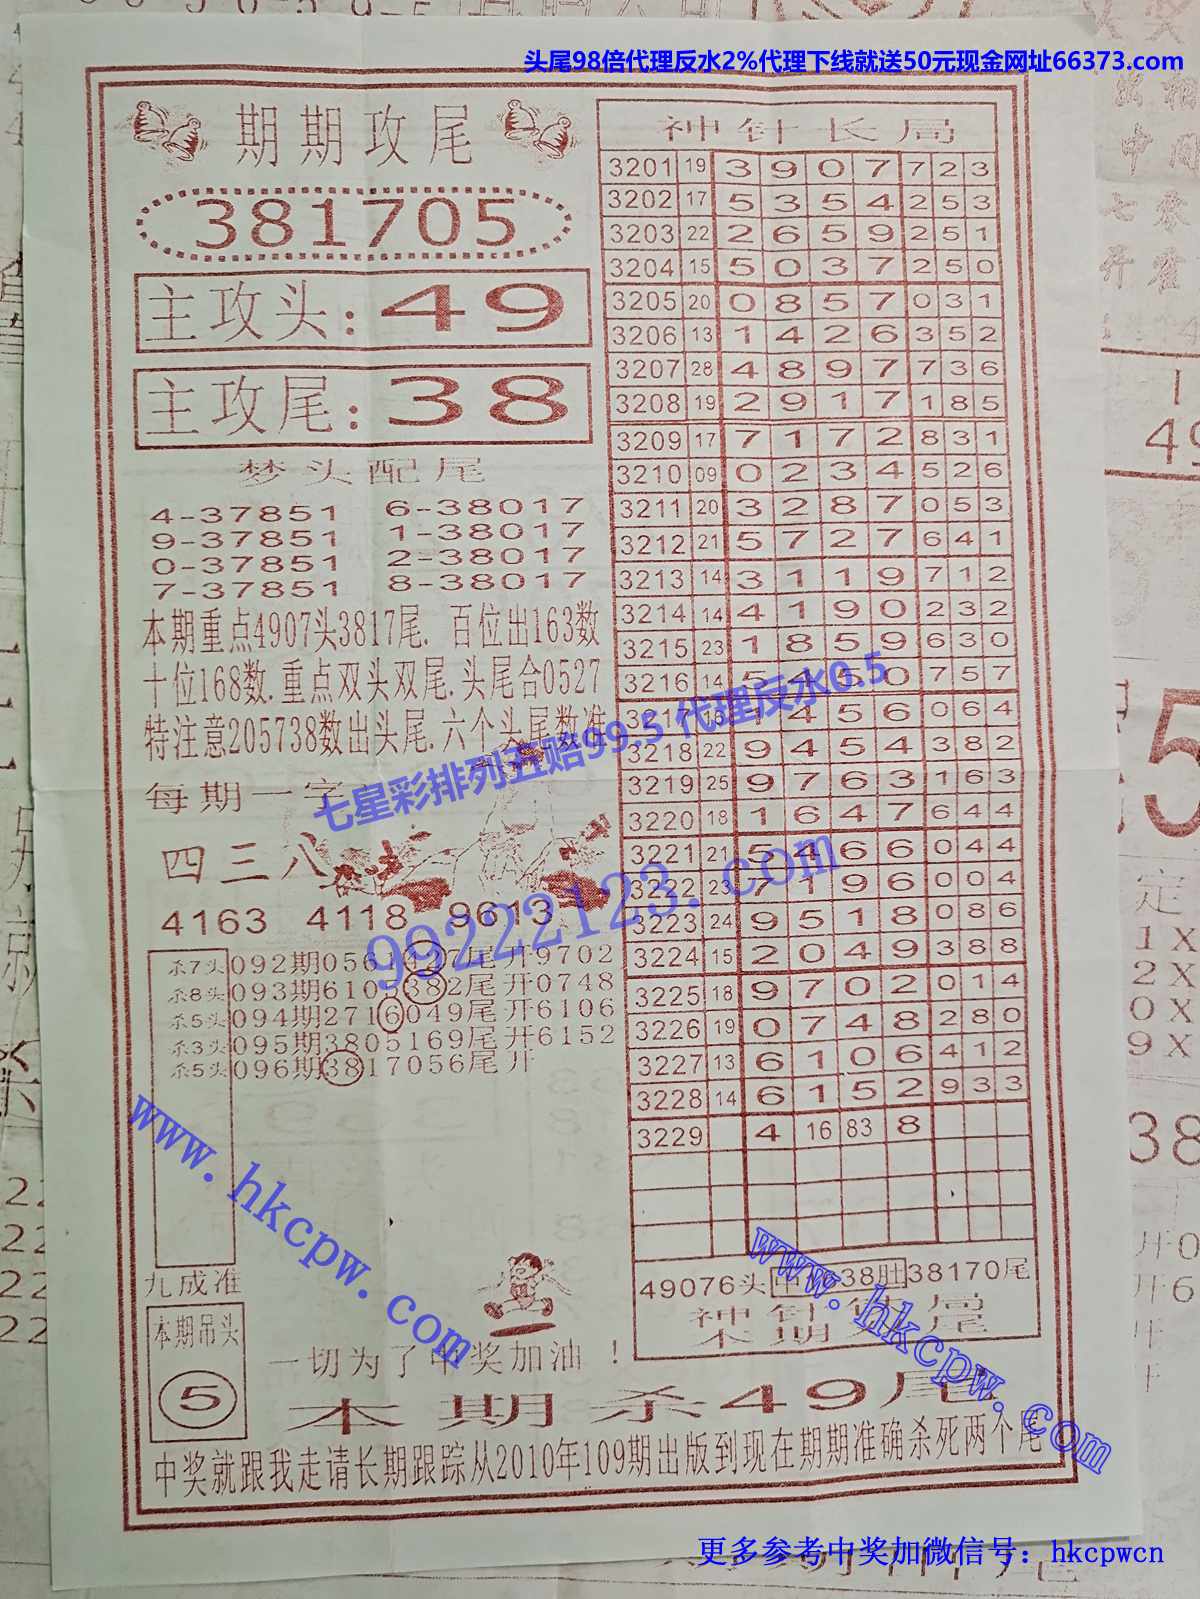 头尾98倍代理反水2%代理下线就送50元现金网址66373.com
期期攻尾
381705
主攻头:49
主攻尾:38
梦头配尾
4-37851 6-38017
9-37851 1-38017
0-37851 2-38017
7-37851 8-38017
本期重点4907头3817尾. 百位出163数
十位168数.重点双头双尾.头尾合0527
特注意205738数出头尾.六个头尾数准
每期一字
四三八
4163 4118 8613
杀7头092期0561427尾开9702
杀8头093期6105382尾开0748
杀5头094期2716049尾开6106
杀3头095期3805169尾开6152
杀5头096期3817056尾开
九成准
本期吊头
5
一切为了中奖加油！
本期杀49尾
中奖就跟我走请长期跟踪从2010年109期出版到现在期期准确杀死两个尾
神针长局
3201 19 3 9 0 7 7 2 3
3202 17 5 3 5 4 2 5 3
3203 22 2 6 5 9 2 5 1
3204 15 5 0 3 7 2 5 0
3205 20 0 8 5 7 0 3 1
3206 13 1 4 2 6 3 5 2
3207 28 4 8 9 7 7 3 6
3208 19 2 9 1 7 1 8 5
3209 17 7 1 7 2 8 3 1
3210 09 0 2 3 4 5 2 6
3211 20 3 2 8 7 0 5 3
3212 21 5 7 2 7 6 4 1
3213 14 3 1 1 9 7 1 2
3214 14 4 1 9 0 2 3 2
3215 23 1 8 5 9 6 3 0
3216 14 5 4 5 0 7 5 7
3217 16 1 4 5 6 0 6 4
3218 22 9 4 5 4 3 8 2
3219 25 9 7 6 3 1 6 3
3220 18 1 6 4 7 6 4 4
3221 21 5 4 6 6 0 4 4
3222 23 7 1 9 6 0 0 4
3223 24 9 5 1 8 0 8 6
3224 15 2 0 4 9 3 8 8
3225 18 9 7 0 2 0 1 4
3226 19 0 7 4 8 2 8 0
3227 13 6 1 0 6 4 1 2
3228 14 6 1 5 2 9 3 3
3229 4 16 83 8
49076头 中 38肚 38170尾
神针 局
本期 尾
七星彩排列五赔99.5 代理反水0.5
99222123.com
www.hkcpw.com
www.hkcpw.com
更多参考中奖加微信号：hkcpwcn